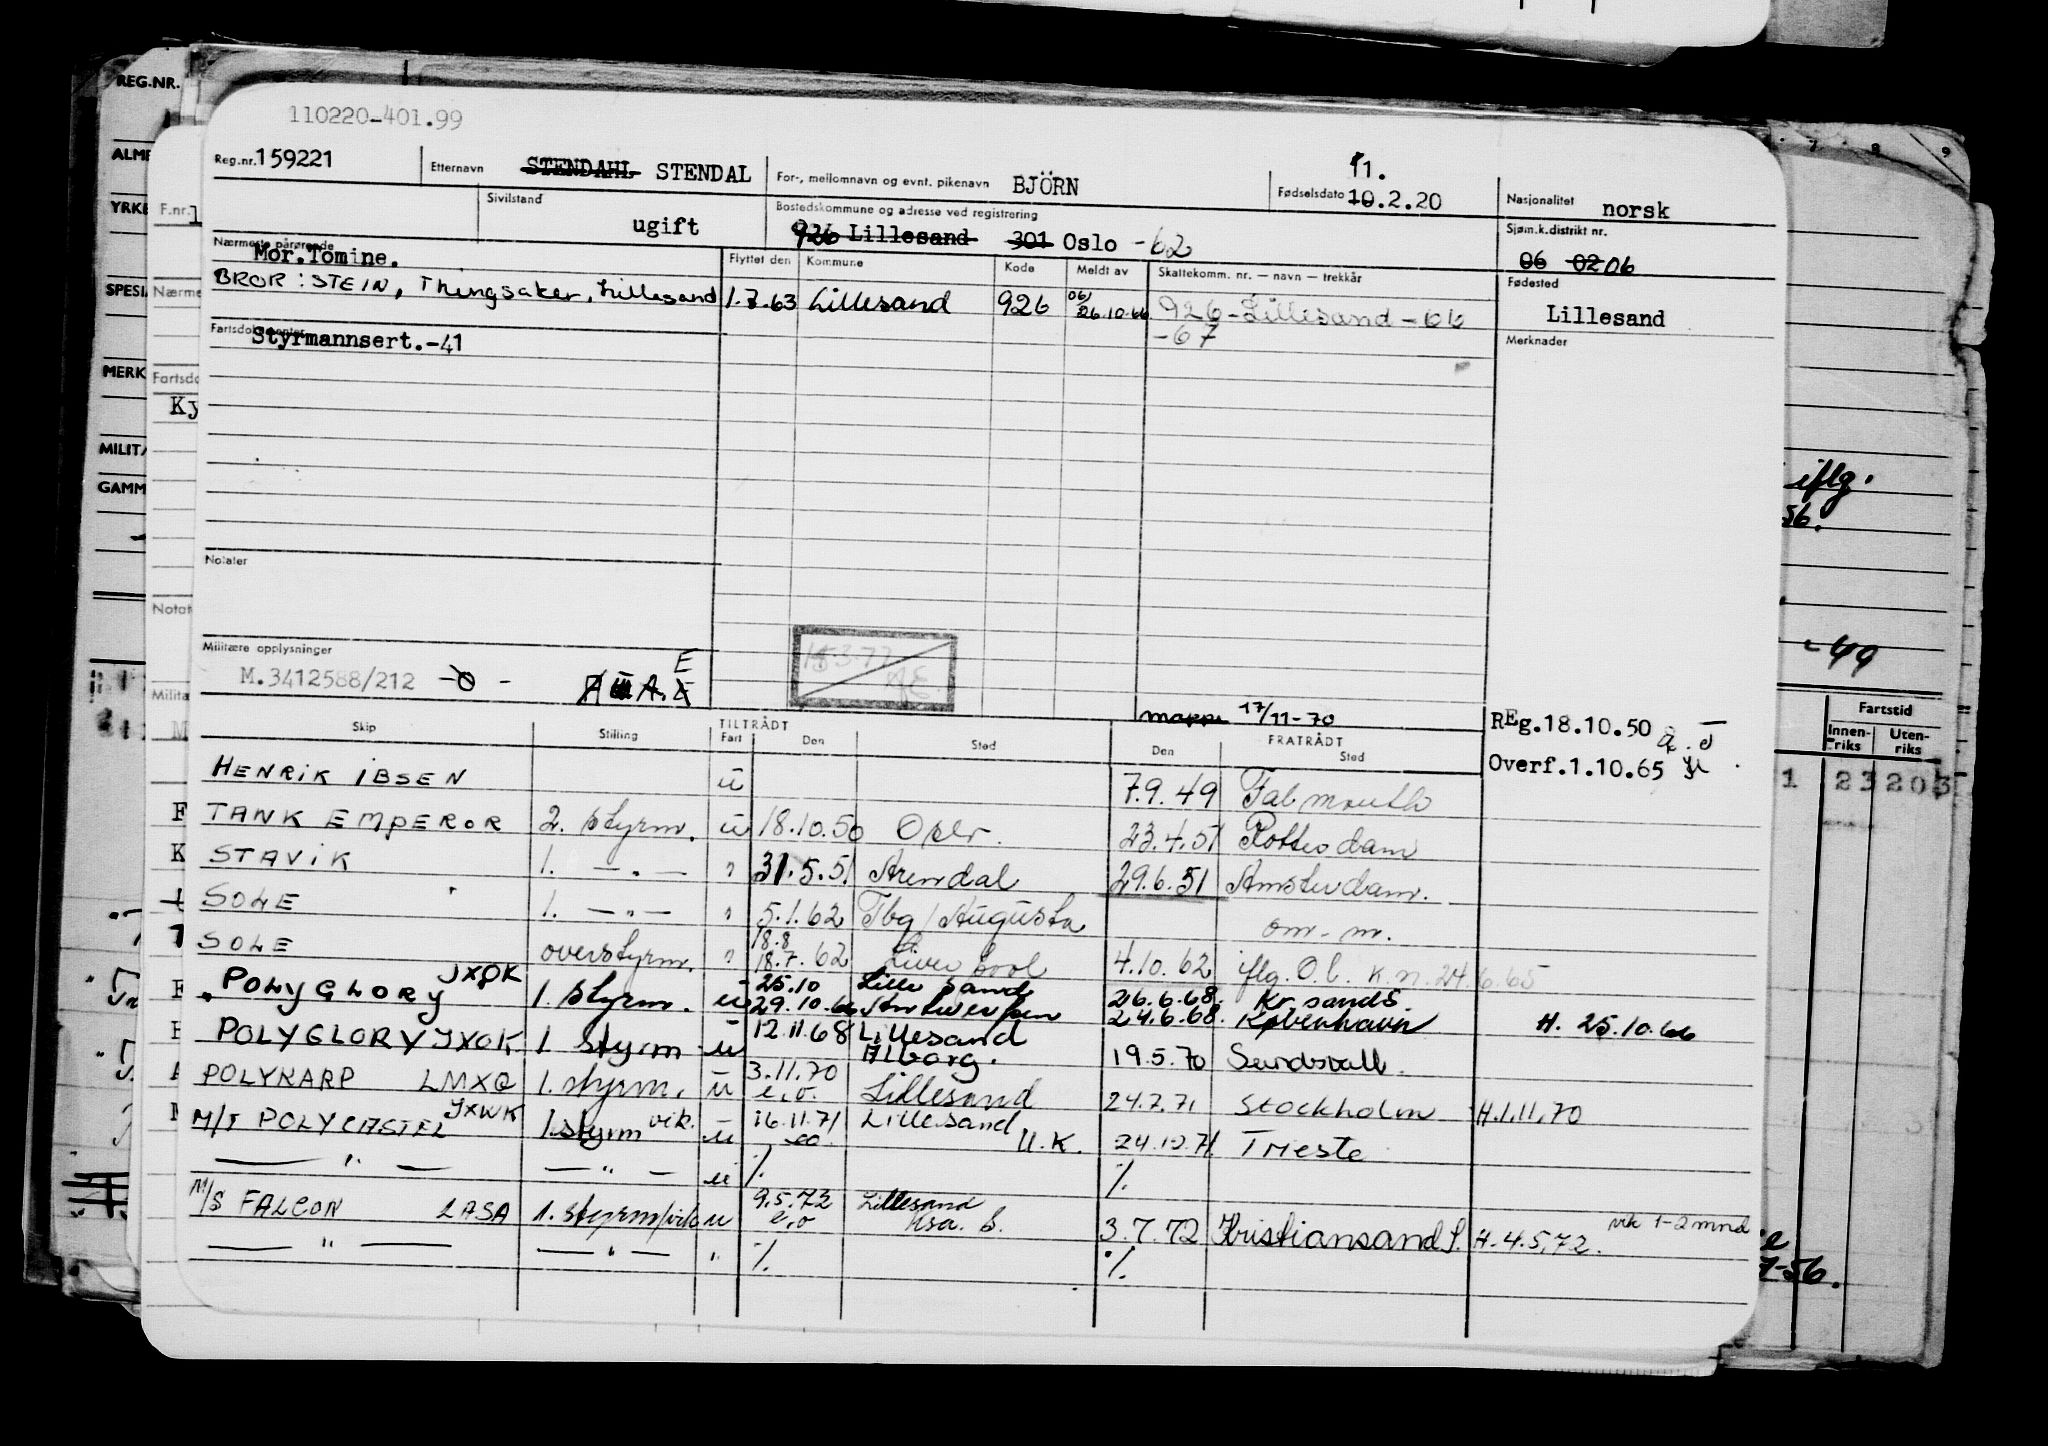 110220-401.99
Reg.nr. 159221 Etternavn STENDAHL STENDAL For-, mellomnavn og evnt. pikenavn BJÖRN Fødselsdato 11. 10.2.20 Nasjonalitet norsk
F.nr. 1 Sivilstand ugift Bostedskommune og adresse ved registrering 926 Lillesand 301 Oslo -62 Sjøm.k.distrikt nr. 06 02 06
Nærmeste pårørende Mor.Tomine. Flyttet den Kommune Kode Meldt av Skattekomm. nr. — navn — trekkår Fødested
BROR : STEIN, Thingsaker, Lillesand 1.7.63 Lillesand 926 06/ 26.10.66 926-Lillesand-66 Lillesand
-67
Fartsdokumenter Styrmannsert.-41 Merknader
Notater
Militære opplysninger
M.3412588/212 -0- A III A. E
15.3.77
mappe 17/11-70 REg.18.10.50
Overf.1.10.65
Skip Stilling TILTRÅDT Fart Den Sted FRATRÅDT Den Sted
HENRIK IBSEN u 7.9.49 Falmouth
TANK EMPEROR 2. styrm. u 18.10.50 Oslo. 23.4.51 Rotterdam
STAVIK 1. — " — " 31.5.51 Arendal 29.6.51 Amsterdam.
SOLE 1. — " — " 5.1.62 Tbg/Augusta om-m.
SOLE overstyrm. " 18.8 18.7.62 Liverpool 4.10.62 iflg. O.l. K.n. 24.6.65
POLYGLORY JXOK 1. styrm. u 25.10 29.10.66 Lillesand Antwerpen 26.6.68. 24.6.68. Kr.sand S København H. 25.10.66
POLYGLORY JXOK 1 styrm u 12.11.68 Lillesand Ålborg. 19.5.70 Sundsvall.
POLYKARP LMXQ 1. styrm. u 3.11.70 e.o. Lillesand 24.7.71 Stockholm H.1.11.70
M/T POLYCASTEL JXWK 1.styrm vik. u 16.11.71 eo Lillesand U.K. 24.12.71 Trieste
— " — — " — u %. %.
M/S FALCON LASA 1. styrm/vik u 9.5.72 e.o Lillesand Krs. S. 3.7.72 Kristiansand S. H.4.5.72. vik 1-2 mnd
— " — — " — " %. %.
REG.NR.
YRKE
MILITA
GAMM
Ky
iflg.
56.
-49
Fartstid
Innen-riks Uten-riks
1 23 203
7-56.